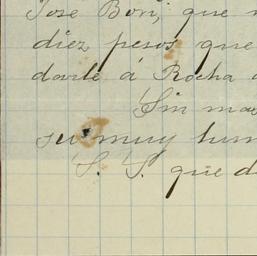 Jose Bon, que
diez pesos que
darle á Rocha
Sin mas
su muy hum
S. S. que d